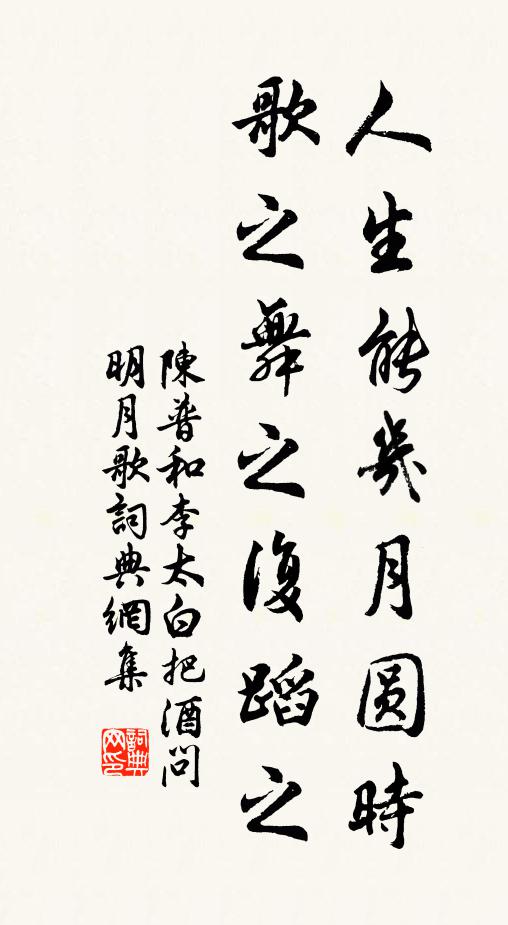 人生能幾月圓時
歌之舞之復蹈之
陳普和李太白把酒問
明月歌詞典網集
詞典
网印